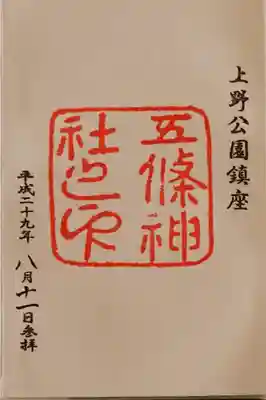 上野公園鎮座
五條神
社之印
平成二十九年 八月十一日参拝